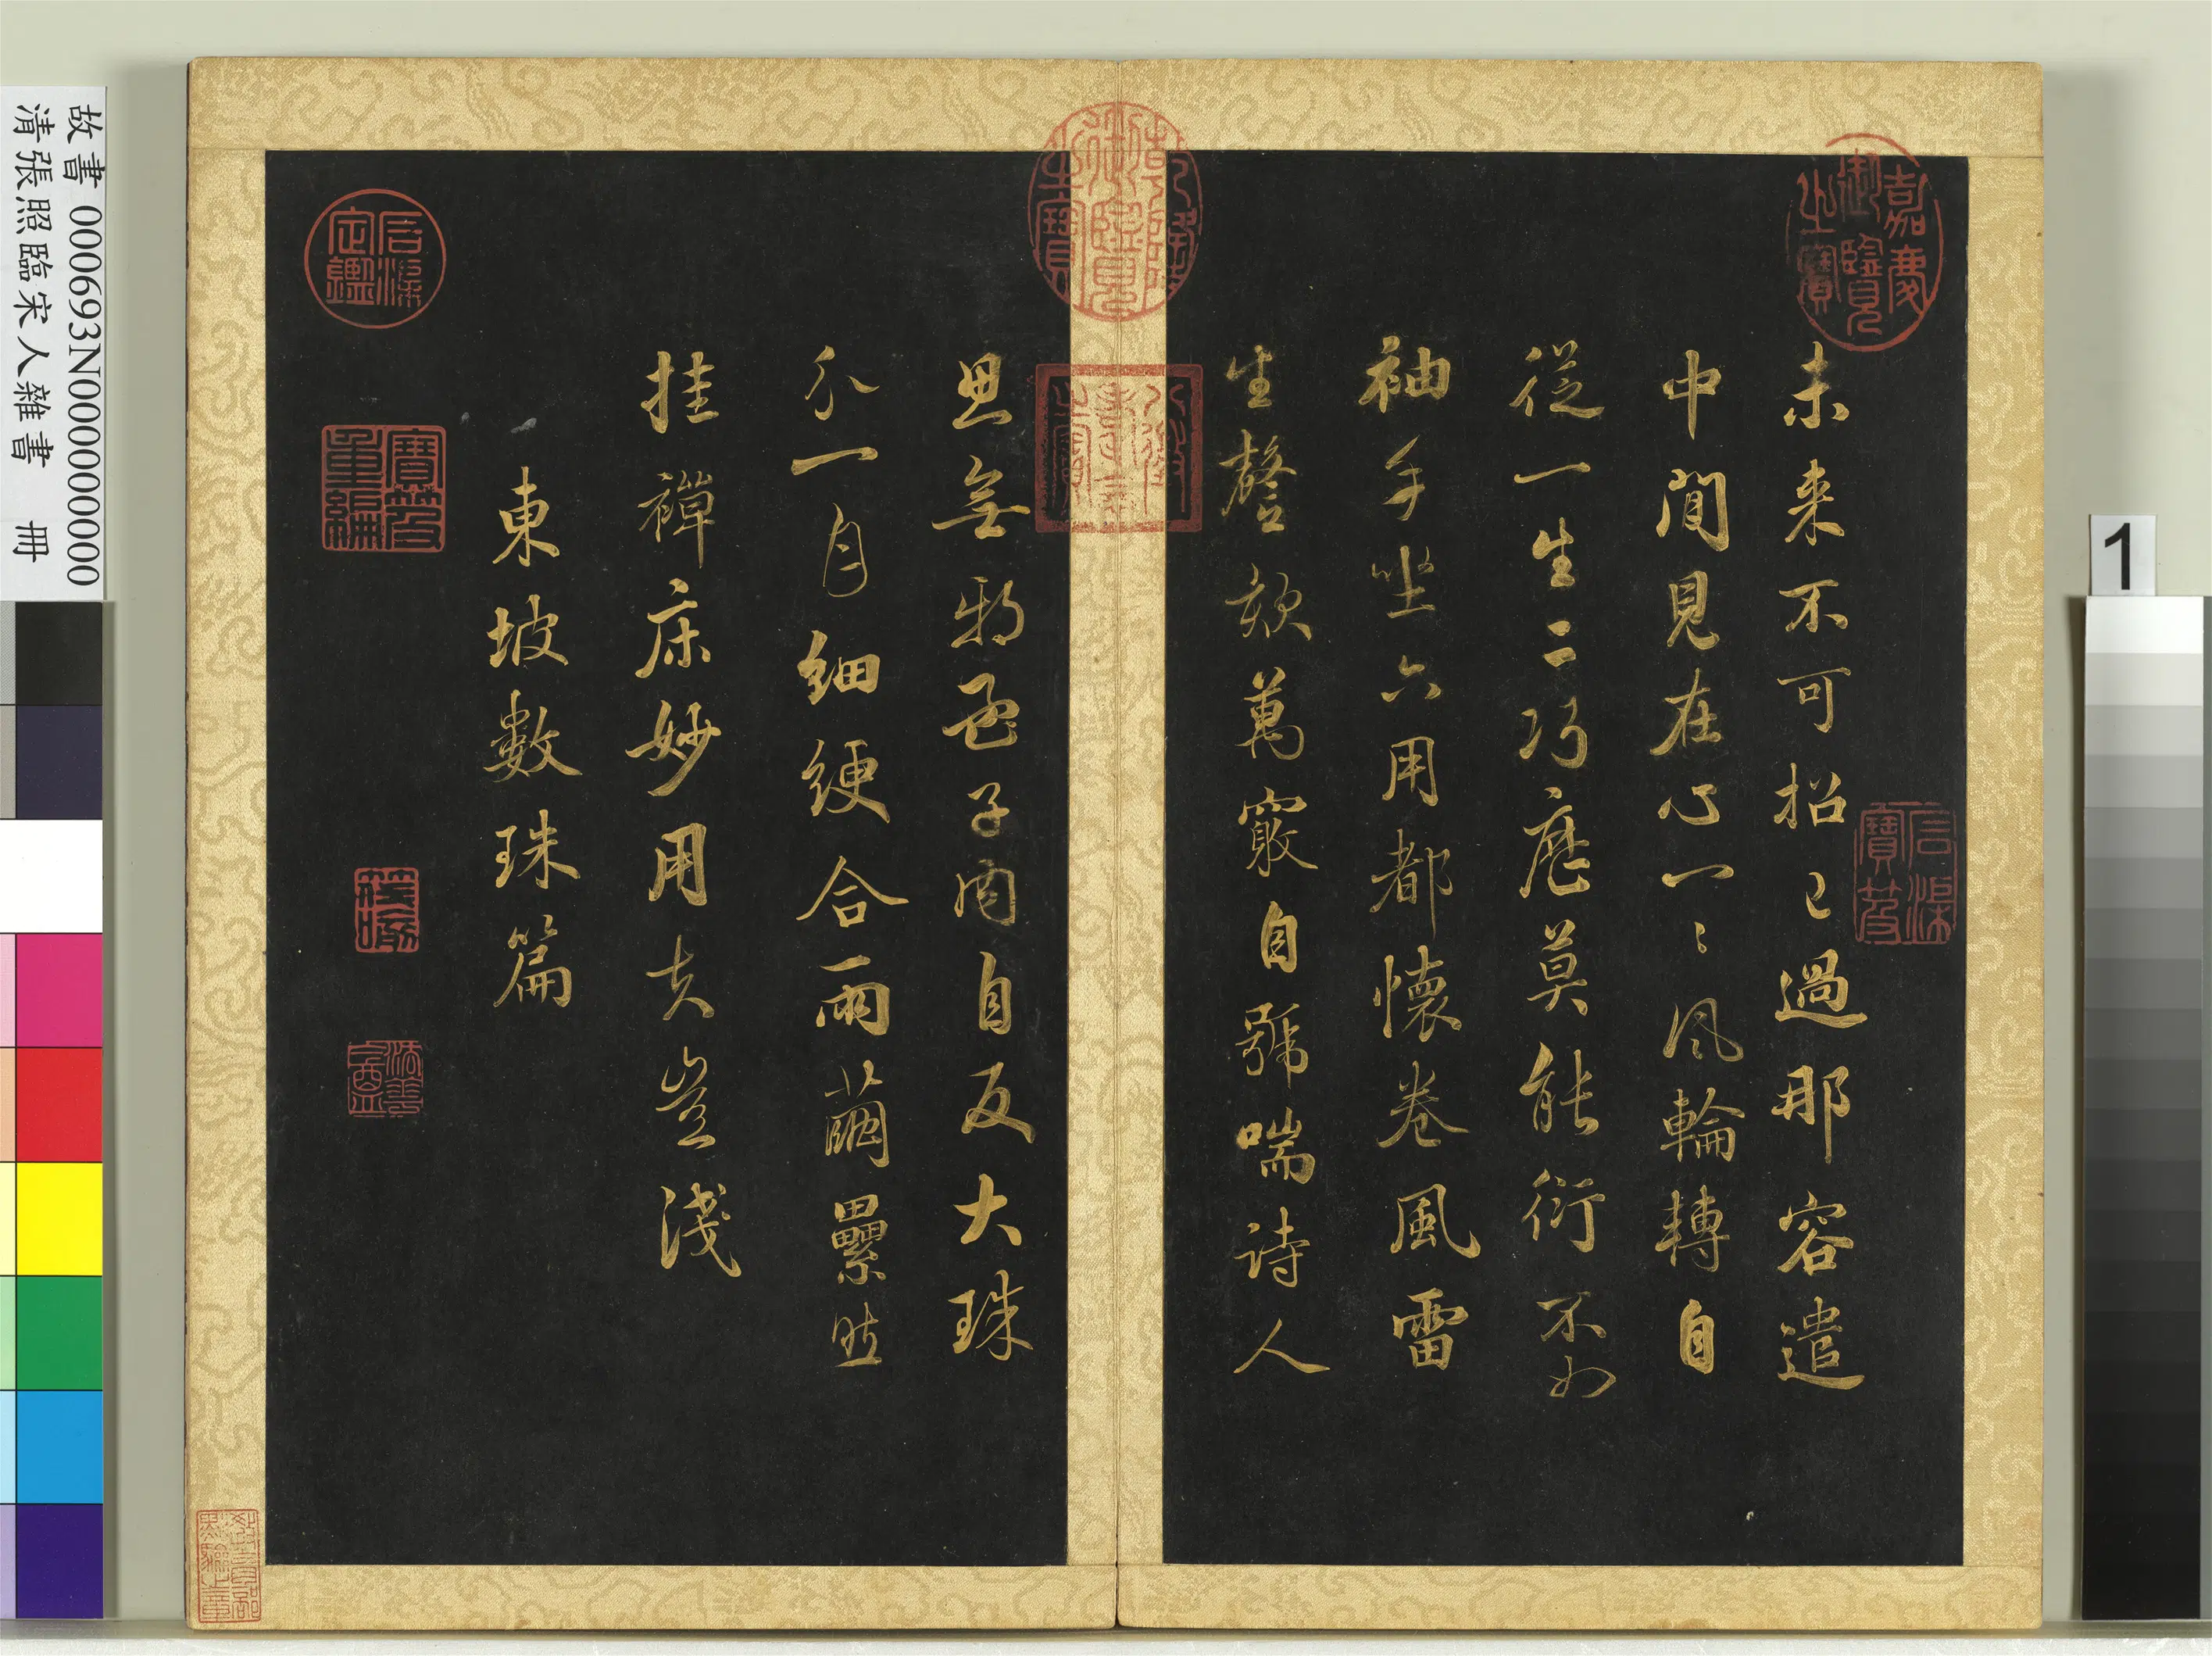 未來不可招已過那容遣
中間見在心一〻風輪轉自
從一生二巧歷莫能衍不如
袖手坐六用都懷卷風雷
生謦欬萬竅自號喘詩人
思無邪孟子內自反大珠
分一月細綆合兩繭纍然
挂禪床妙用夫豈淺
東坡數珠篇
嘉慶御覽之寶
石渠寶笈
乾隆御覽之寶
八徵耄念之寶
石渠定鑑
寶笈重編
筏喻
教育部點驗之章
故書 000693N000000000
清張照臨宋人雜書 冊
1